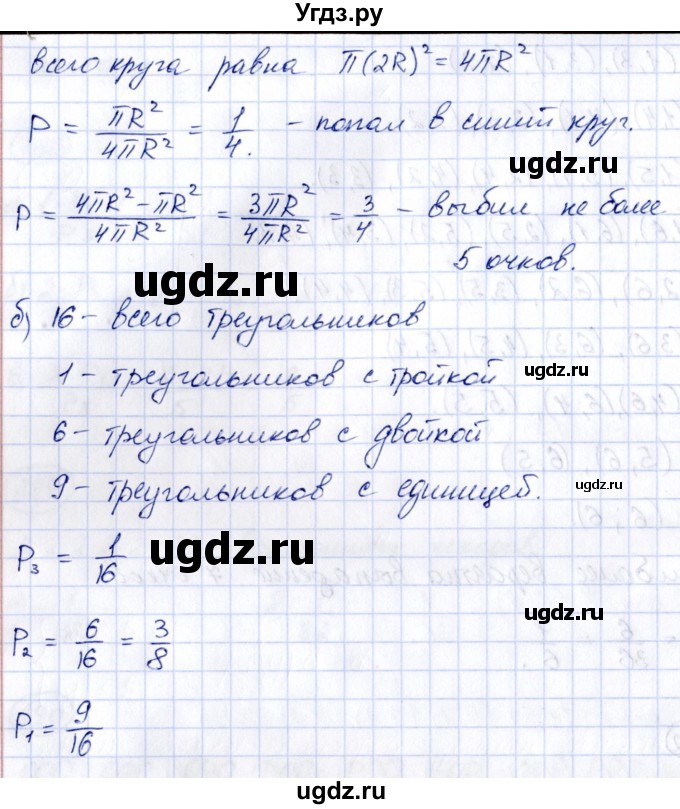 Угдз.ру
всего круга равна π(2R)² = 4πR²
P = πR²/4πR² = 1/4. – попал в синий круг.
ugdz.ru
P = 4πR²–πR²/4πR² = 3πR²/4πR² = 3/4 – выбил не более
5 очков.
ugdz.ru
ugdz.ru
б) 16 – всего треугольников
1 – треугольников с тройкой
ugdz.ru
6 – треугольников с двойкой
ugdz.ru
9 – треугольников с единицей.
P₃ = 1/16
ugdz.ru
ugdz.ru
P₂ = 6/16 = 3/8
P₁ = 9/16
ugdz.ru